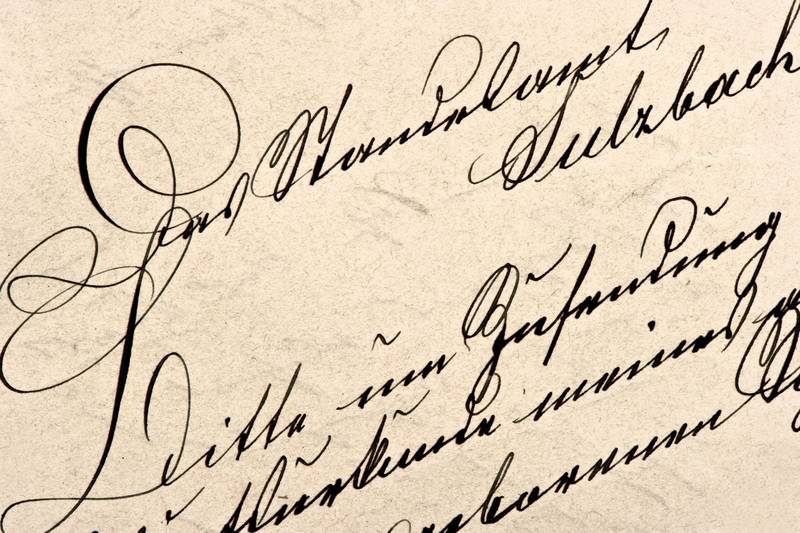 Das Standesamt
Sulzbach
Bitte um Zusendung
Urkunde meines
geborenen